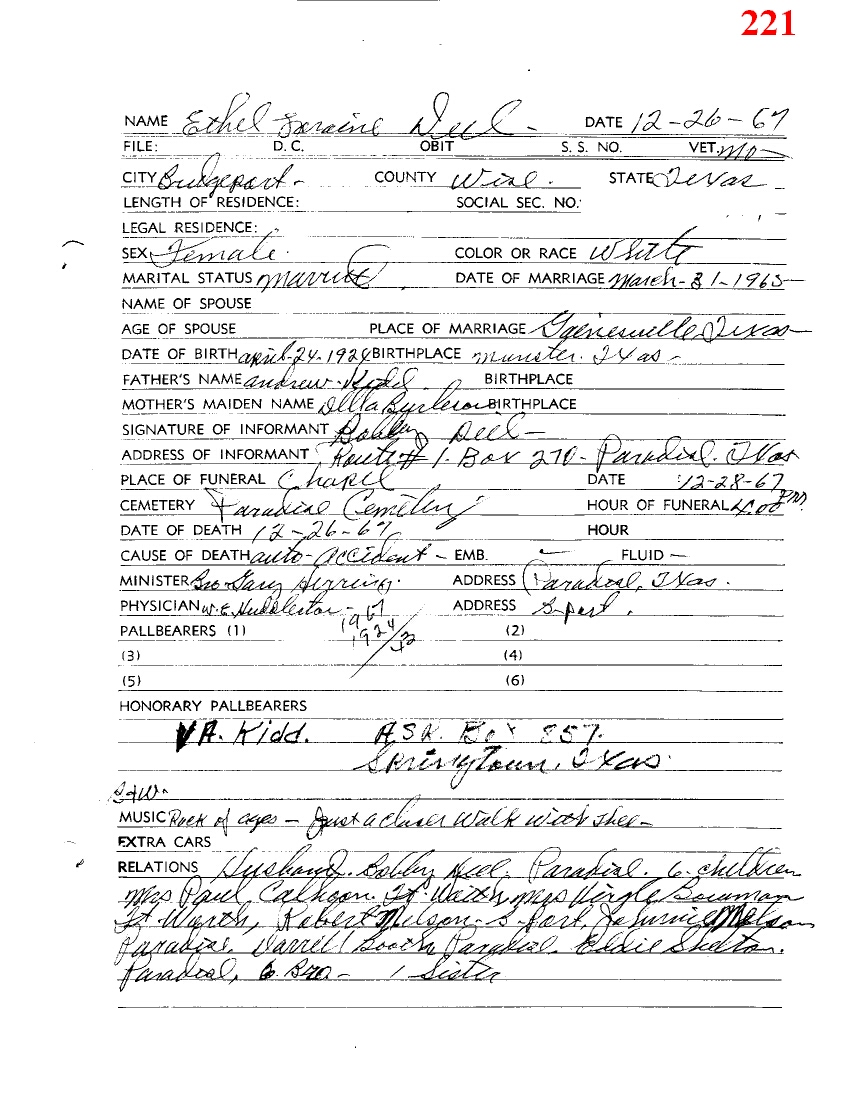 221
NAME Ethel Loraine Deel - DATE 12-26-67
FILE: D. C. OBIT S. S. NO. VET. no
CITY Bridgeport - COUNTY Wise. STATE Texas
LENGTH OF RESIDENCE: SOCIAL SEC. NO:
LEGAL RESIDENCE:
SEX Female COLOR OR RACE White
MARITAL STATUS married DATE OF MARRIAGE March-31-1965
NAME OF SPOUSE
AGE OF SPOUSE PLACE OF MARRIAGE Gainesville Texas
DATE OF BIRTH april-24-1924 BIRTHPLACE Munster. Texas -
FATHER'S NAME andrew. Kidd. BIRTHPLACE
MOTHER'S MAIDEN NAME Della Burleson BIRTHPLACE
SIGNATURE OF INFORMANT Bobby Deel -
ADDRESS OF INFORMANT Route # 1. Box 270- Paradise. Texas
PLACE OF FUNERAL Chapel DATE 12-28-67
CEMETERY Paradise Cemetery HOUR OF FUNERAL 4:00 P.M.
DATE OF DEATH 12-26-67 HOUR
CAUSE OF DEATH auto-accident - EMB. FLUID
MINISTER Bro-Gary Herring. ADDRESS Paradise, Texas.
PHYSICIAN W.E. Huddleston - ADDRESS B-port.
1967
PALLBEARERS (1) 1924/43 (2)
(3) (4)
(5) (6)
HONORARY PALLBEARERS
V A. Kidd. Box 857.
Springtown, Texas.
MUSIC Rock of ages - Just a closer Walk With Thee -
EXTRA CARS
RELATIONS Husband. Bobby Deel. Paradise. 6 children
Mrs Paul Calhoon. Ft. Worth, Mrs Virgle Bowman
Ft Worth, Robert Melson- Johnnie Melson
Paradise Darrell Booth Paradise. Eddie Shelton.
Paradise, 6 Bro - 1 Sister